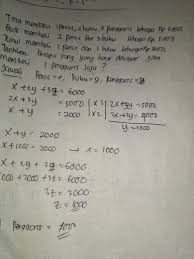 Tina membeli 1 pensil, 2 buku, 3 penggaris seharga Rp 6000.
membeli 2 pensil dan 3 buku seharga Rp 5000
membeli 1 pensil dan 1 buku seharga Rp 2000.
berapa yang harus dibayar jika
membeli 1 penggaris saja ?
Jawab
Pensil = x, buku = y, Penggaris = z
x + 2y + 3z = 6000
2x + 3y = 5000 | x 1 | 2x + 3y = 5000
x + y = 2000
y = 1000
x + y = 2000
x + 1000 = 2000 → x = 1000
x + 2y + 3z = 6000
1000 + 2000 + 3z = 6000
3z = 3000
z = 1000
Penggaris = 1000